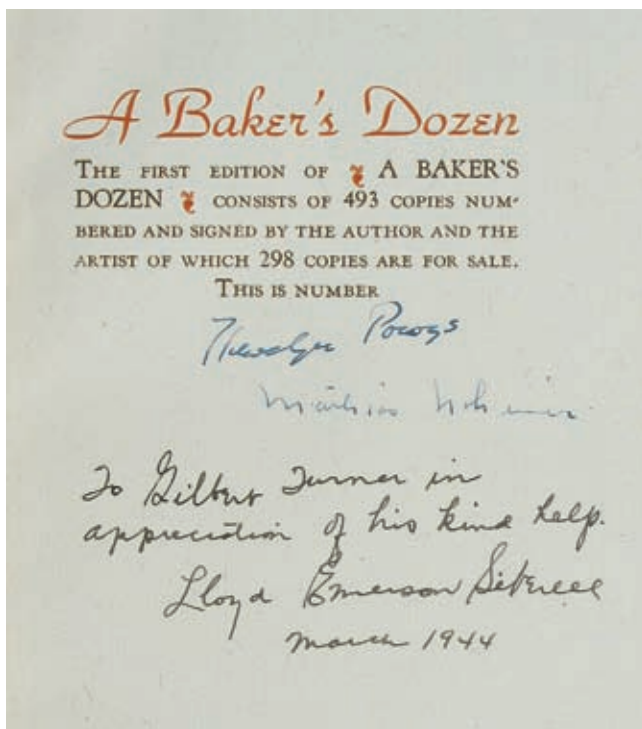 A Baker's Dozen
THE FIRST EDITION OF A BAKER'S
DOZEN CONSISTS OF 493 COPIES NUM-
BERED AND SIGNED BY THE AUTHOR AND THE
ARTIST OF WHICH 298 COPIES ARE FOR SALE.
THIS IS NUMBER
Powys
To Gilbert Turner in
appreciation of his kind help.
Lloyd Emerson Siberell
March 1944